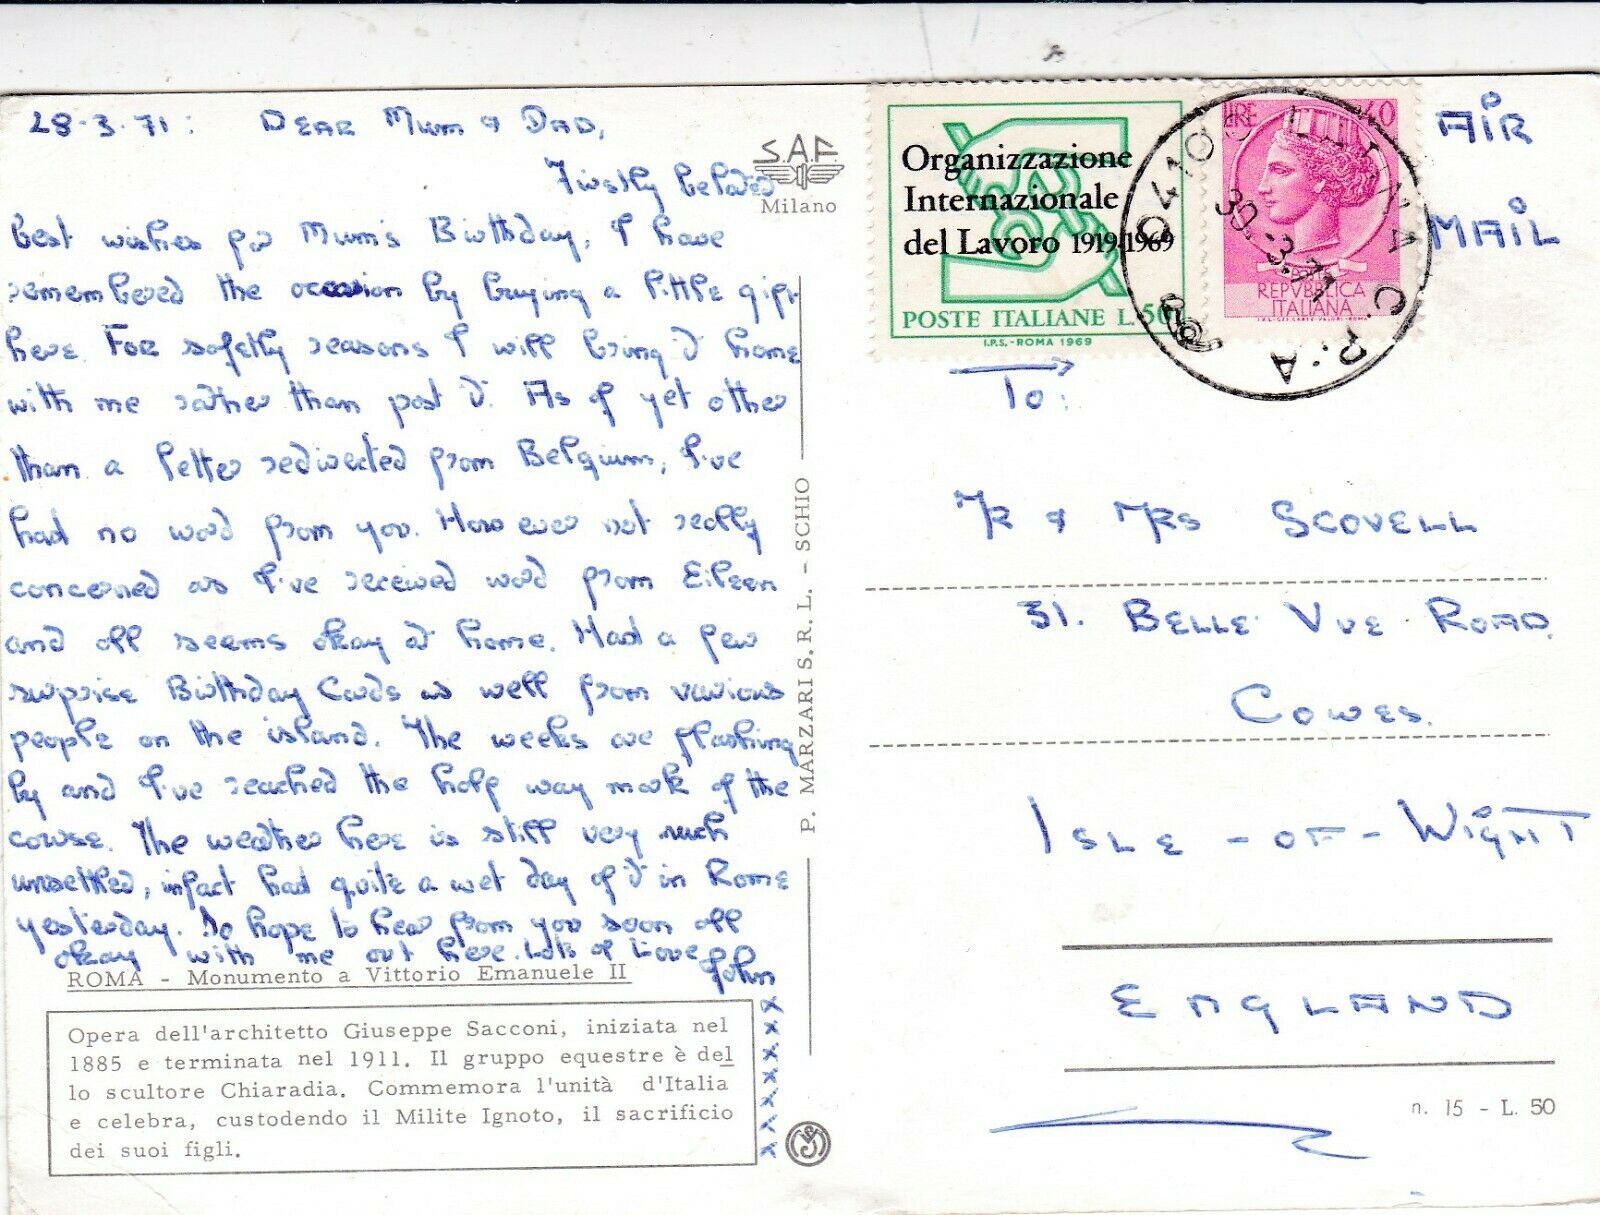 28.3.71: DEAR Mum & DAD,
Firstly belated
best wishes for Mum's Birthday, I have
remembered the occasion by buying a little gift
here. For safetly reasons I will bring it home
with me rather than post it. As of yet other
than a letter redirected from Belgium, I've
had no word from you. However not really
concerned as I've received word from Eileen
and all seems okay at home. Had a few
surprise Birthday Cards as well from various
people on the island. The weeks are flashing
by and I've reached the half way mark of the
course. The weather here is still very much
unsettled, infact had quite a wet day of it in Rome
yesterday. So hope to hear from you soon all
okay with me out here. Lots of Love
John
x x x x x x x
ROMA - Monumento a Vittorio Emanuele II
Opera dell'architetto Giuseppe Sacconi, iniziata nel
1885 e terminata nel 1911. Il gruppo equestre è del
lo scultore Chiaradia. Commemora l'unità d'Italia
e celebra, custodendo il Milite Ignoto, il sacrificio
dei suoi figli.
S.A.F.
Milano
P. MARZARI S. R. L. - SCHIO
Organizzazione
Internazionale
del Lavoro 1919-1969
POSTE ITALIANE L. 50
I.P.S. - ROMA 1969
LIRE 40
POSTE
REPVBBLICA
ITALIANA
04100 LATINA C.P. - A
30.-3.71
AIR
MAIL
To:
MR & MRS SCOVELL
31. BELLE VUE ROAD.
COWES.
ISLE - OF - WIGHT
ENGLAND
n. 15 - L. 50